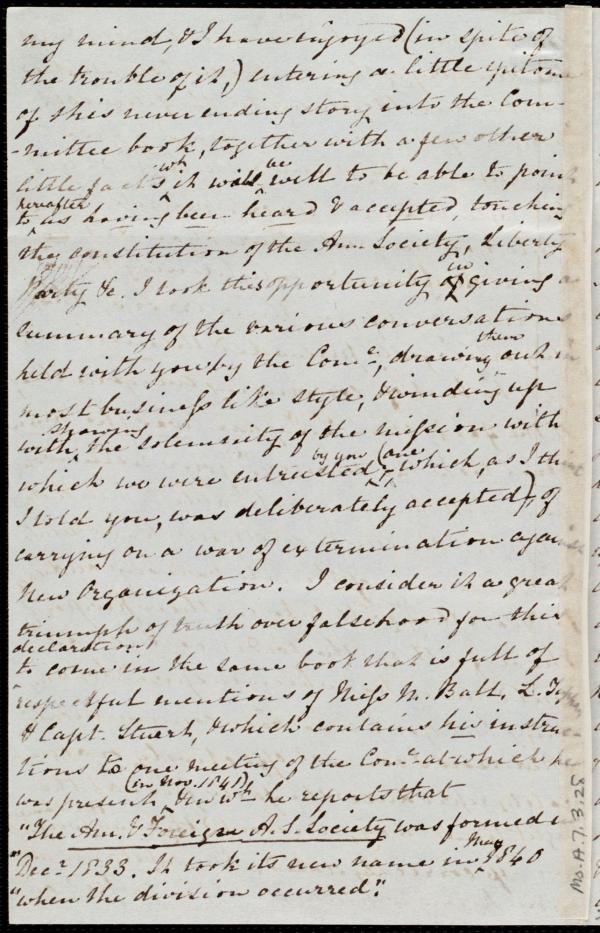 my mind, & I have enjoyed (in spite of
the trouble of it,) entering a little epitome
of this never ending story into the Com-
-mittee book, together with a few other
little facts wh it will be well to be able to point
to hereafter as having been heard & accepted, touching
the constitution of the Am. Society, Liberty
Party &c. I took this opportunity in giving a
summary of the various conversations
held with you by the Comee, drawing them out in
most business like style, & winding up
with showing the solemnity of the mission with
which we were entrusted by you (one which, as I think
I told you, was deliberately accepted), of
carrying on a war of extermination against
New Organization. I consider it a great
triumph of truth over falsehood for this
declaration to come in the same book that is full of
respectful mentions of Miss M. Ball, L. Tappan
& Capt. Stuart, & which contains his instruc-
tions to one meeting of the Comee at which he
was present (in Nov. 1841), & in wh he reports that
"The Am. & Foreign A. S. Society was formed in
"Decr 1833. It took its new name in May 1840
"when the division occurred".
Ms.A.7.3.28